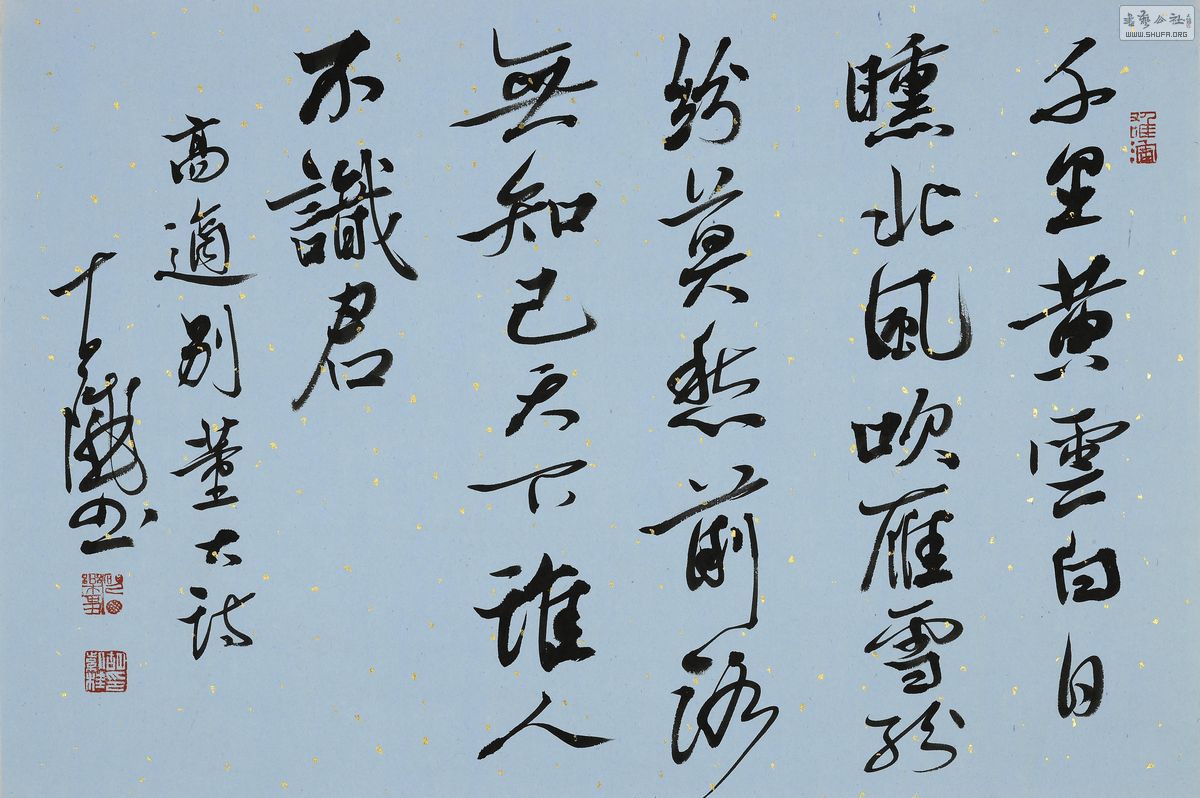 千里黄雲白日
曛北風吹雁雪紛
紛莫愁前路
無知己天下誰人
不識君
高適别董大詩
書艺公社
WWW.SHUFA.ORG